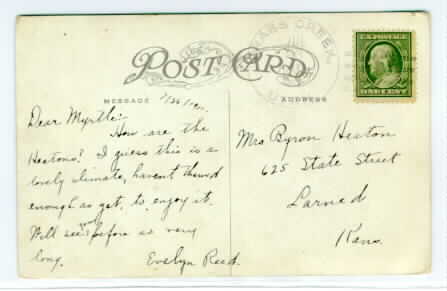 POST CARD
MESSAGE
ADDRESS
U.S. POSTAGE
ONE CENT
Dear Myrtle:-
How are the
Hestons? I guess this is a
lovely climate, haven't thawed
enough as yet, to enjoy it.
Will see you before so very
long.
Evelyn Reed.
Mrs Byron Heston
625 State Street
Larned
Kans.